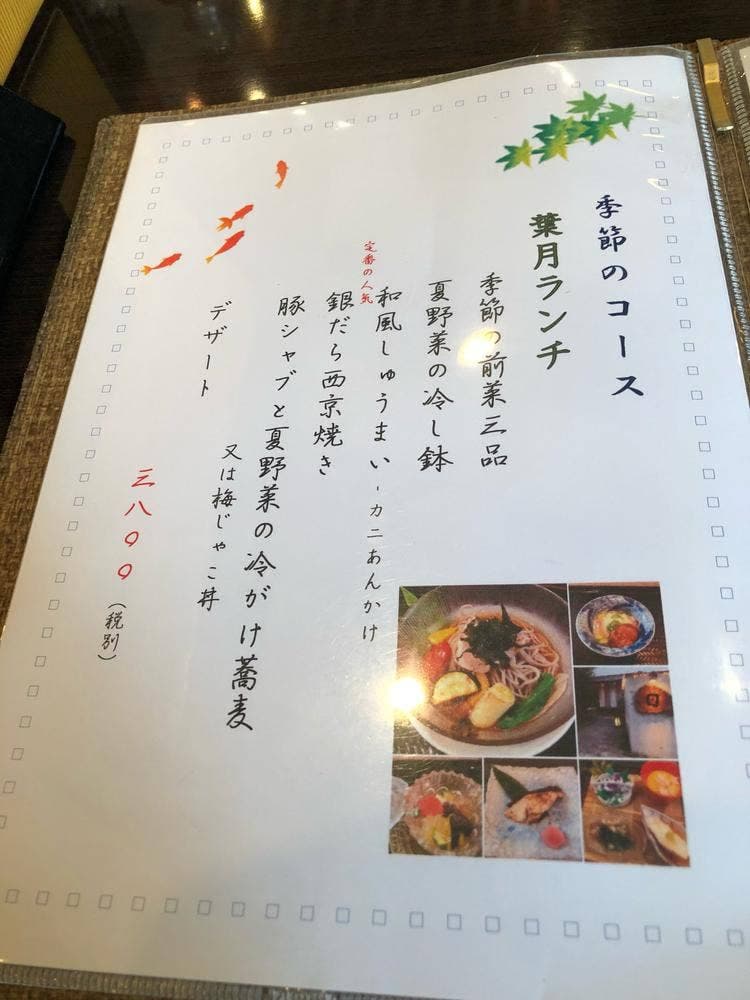 季節のコース
葉月ランチ
季節の前菜三品
夏野菜の冷し鉢
定番の人気
和風しゅうまい-カニあんかけ
銀だら西京焼き
豚シャブと夏野菜の冷がけ蕎麦
又は梅じゃこ丼
デザート
三八〇〇
(税別)